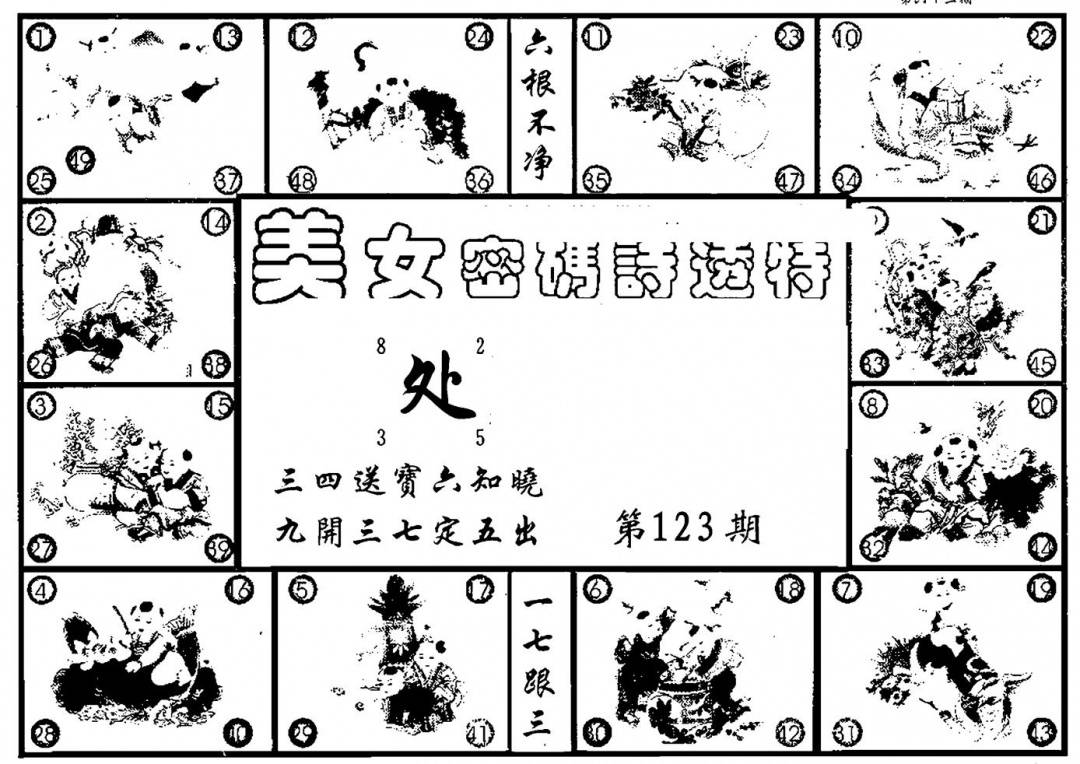 ① ⑬ ⑫ ㉔ 六根不净 ⑪ ㉓ ⑩ ㉒
㊾
㉕ ㊲ ㊽ ㊱ ㉟ ㊼ ㉞ ㊻
② ⑭
美女密碼詩透特
㉑
8 2
处
3 5
㉖ ㊳ ㉝ ㊺
③ ⑮ ⑧ ⑳
三四送寶六知曉
九開三七定五出 第123期
㉗ ㊴ ㉜ ㊹
④ ⑯ ⑤ ⑰ 一七跟三 ⑥ ⑱ ⑦ ⑲
㉘ ㊵ ㉙ ㊶ ㉚ ㊷ ㉛ ㊸